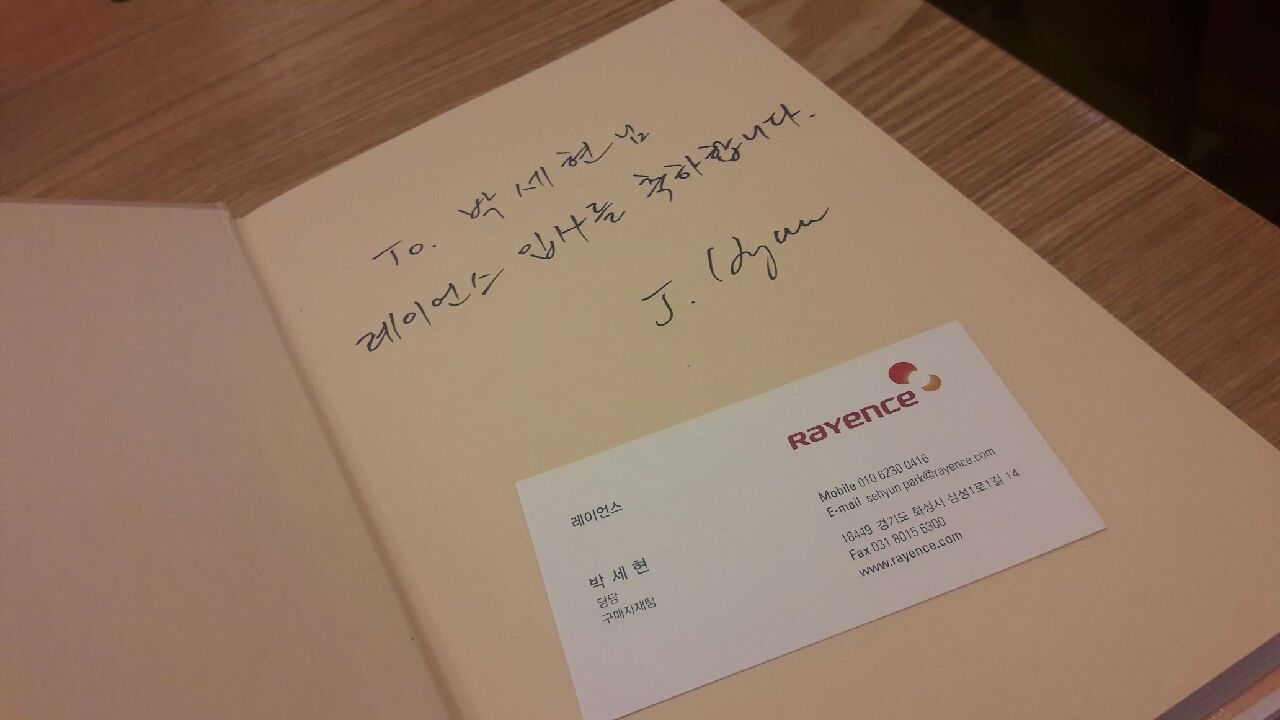 To. 박세현님
레이언스 입사를 축하합니다.
J. Hyun
RAYENCE
레이언스
박 세 현
담당
구매자재팀
Mobile 010 6230 0416
E-mail sehyun.park@rayence.com
18449 경기도 화성시 삼성1로1길 14
Fax 031 8015 6300
www.rayence.com